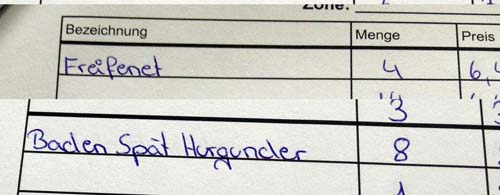 Zone:
Bezeichnung Menge Preis
Freifenet 4 6,4
3
Baden Spät Hurgunder 8